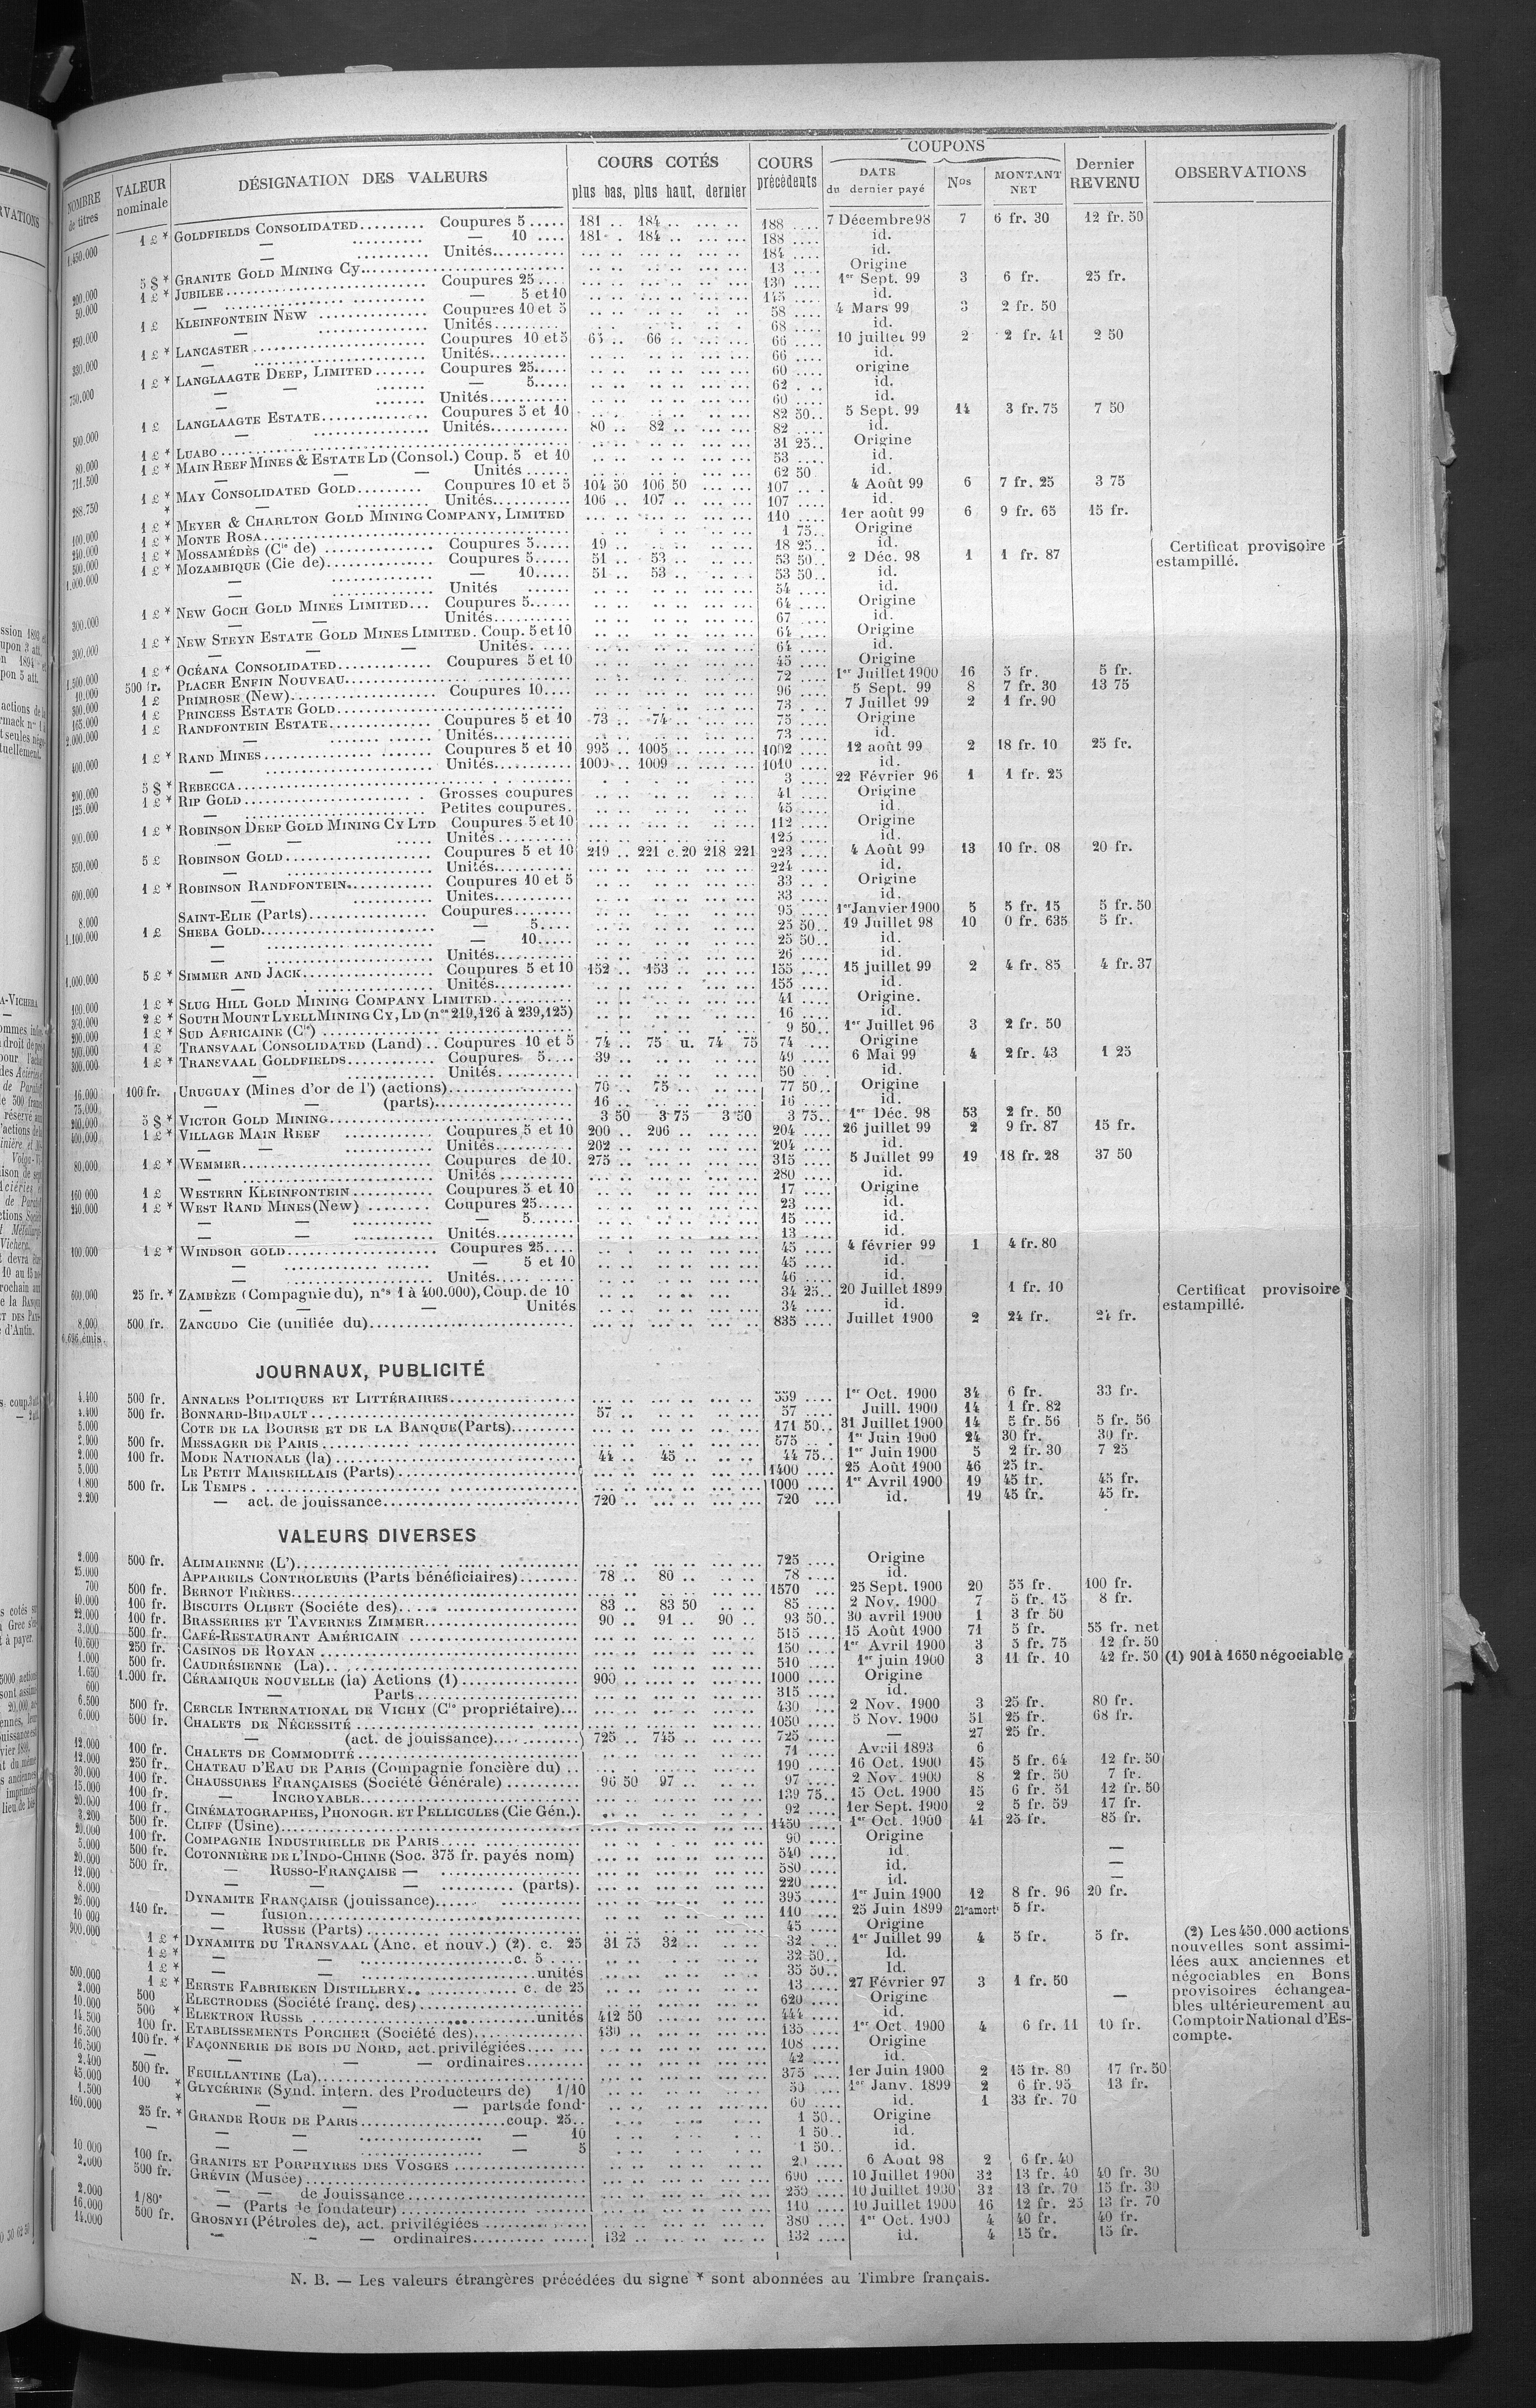 COUPONS
NOMBRE de titres | VALEUR nominale | DÉSIGNATION DES VALEURS | COURS COTÉS plus bas, plus haut, dernier | COURS précédents | DATE du dernier payé | Nos | MONTANT NET | Dernier REVENU | OBSERVATIONS
1.450.000 1 £ * GOLDFIELDS CONSOLIDATED Coupures 5 181 184 188 7 Décembre 98 7 6 fr. 30 12 fr. 50
— — 10 181 184 188 id.
Unités 184 id.
200.000 5 $ * GRANITE GOLD MINING Cy 13 Origine
50.000 1 £ * JUBILEE Coupures 25 130 1er Sept. 99 3 6 fr. 25 fr.
— — 5 et 10 145 id.
250.000 1 £ KLEINFONTEIN NEW Coupures 10 et 5 58 4 Mars 99 3 2 fr. 50
— Unités 68 id.
330.000 1 £ * LANCASTER Coupures 10 et 5 65 66 66 10 juillet 99 2 2 fr. 41 2 50
— Unités 66 id.
750.000 1 £ * LANGLAAGTE DEEP, LIMITED Coupures 25 60 origine
— — — 5 62 id.
— Unités 60 id.
500.000 1 £ LANGLAAGTE ESTATE Coupures 5 et 10 82 50 5 Sept. 99 14 3 fr. 75 7 50
— Unités 80 82 82 id.
80.000 1 £ * LUABO 31 25 Origine
711.500 1 £ * MAIN REEF MINES & ESTATE LD (Consol.) Coup. 5 et 10 53 id.
— — — Unités 62 50 id.
288.750 1 £ * MAY CONSOLIDATED GOLD Coupures 10 et 5 104 50 106 50 107 4 Août 99 6 7 fr. 25 3 75
* — Unités 106 107 107 id.
100.000 1 £ * MEYER & CHARLTON GOLD MINING COMPANY, LIMITED 110 1er août 99 6 9 fr. 65 15 fr.
240.000 1 £ * MONTE ROSA 1 75 Origine
500.000 1 £ * MOSSAMÉDÈS (Cie de) Coupures 5 19 18 25 id. Certificat provisoire estampillé.
1.000.000 1 £ * MOZAMBIQUE (Cie de) Coupures 5 51 53 53 50 2 Déc. 98 1 1 fr. 87
— — 10 51 53 53 50 id.
Unités 54 id.
300.000 1 £ * NEW GOCH GOLD MINES LIMITED Coupures 5 64 Origine
— — Unités 67 id.
300.000 1 £ * NEW STEYN ESTATE GOLD MINES LIMITED. Coup. 5 et 10 64 Origine
— — — Unités 64 id.
1.500.000 1 £ * OCÉANA CONSOLIDATED Coupures 5 et 10 45 Origine
10.000 500 fr. PLACER ENFIN NOUVEAU 72 1er Juillet 1900 16 5 fr. 5 fr.
300.000 1 £ PRIMROSE (New) Coupures 10 96 5 Sept. 99 8 7 fr. 30 13 75
165.000 1 £ PRINCESS ESTATE GOLD 73 7 Juillet 99 2 1 fr. 90
2.000.000 1 £ RANDFONTEIN ESTATE Coupures 5 et 10 73 74 75 Origine
— Unités 73 id.
400.000 1 £ * RAND MINES Coupures 5 et 10 995 1005 1002 12 août 99 2 18 fr. 10 25 fr.
— Unités 1009 1009 1010 id.
200.000 5 $ * REBECCA 3 22 Février 96 1 1 fr. 25
125.000 1 £ * RIP GOLD Grosses coupures 41 Origine
— Petites coupures. 45 id.
900.000 1 £ * ROBINSON DEEP GOLD MINING CY LTD Coupures 5 et 10 112 Origine
— — Unités 125 id.
550.000 5 £ ROBINSON GOLD Coupures 5 et 10 219 221 c. 20 218 221 223 4 Août 99 13 10 fr. 08 20 fr.
— Unités 224 id.
600.000 1 £ * ROBINSON RANDFONTEIN Coupures 10 et 5 33 Origine
— Unites 33 id.
8.000 SAINT-ELIE (Parts) Coupures 95 1er Janvier 1900 5 5 fr. 15 5 fr. 50
1.100.000 1 £ SHEBA GOLD — 5 25 50 19 Juillet 98 10 0 fr. 635 5 fr.
— — 10 25 50 id.
— Unités 26 id.
1.000.000 5 £ * SIMMER AND JACK Coupures 5 et 10 152 153 155 15 juillet 99 2 4 fr. 85 4 fr. 37
— Unités 155 id.
100.000 1 £ * SLUG HILL GOLD MINING COMPANY LIMITED 41 Origine.
300.000 2 £ * SOUTH MOUNT LYELL MINING CY, LD (nos 219,126 à 239,125) 16 id.
200.000 1 £ * SUD AFRICAINE (Cie) 9 50 1er Juillet 96 3 2 fr. 50
500.000 1 £ TRANSVAAL CONSOLIDATED (Land) Coupures 10 et 5 74 75 u. 74 75 74 Origine
300.000 1 £ * TRANSVAAL GOLDFIELDS Coupures 5 39 49 6 Mai 99 4 2 fr. 43 1 25
— Unités 50 id.
16.000 100 fr. URUGUAY (Mines d'or de l') (actions) 70 75 77 50 Origine
75.000 — — (parts) 16 16 id.
200.000 5 $ * VICTOR GOLD MINING 3 50 3 75 3 50 3 75 1er Déc. 98 53 2 fr. 50
400.000 1 £ * VILLAGE MAIN REEF Coupures 5 et 10 200 206 204 26 juillet 99 2 9 fr. 87 15 fr.
— — Unités 202 204 id.
80,000 1 £ * WEMMER Coupures de 10. 275 315 5 Juillet 99 19 18 fr. 28 37 50
— Unités 280 id.
160 000 1 £ WESTERN KLEINFONTEIN Coupures 5 et 10 17 Origine
250.000 1 £ * WEST RAND MINES (New) Coupures 25 23 id.
— — — 5 15 id.
— — Unités 13 id.
100.000 1 £ * WINDSOR GOLD Coupures 25 45 4 février 99 1 4 fr. 80
— — 5 et 10 45 id.
— Unités 46 id.
600.000 25 fr. * ZAMBÈZE (Compagnie du), nos 1 à 400.000), Coup. de 10 34 25 20 Juillet 1899 1 fr. 10 Certificat provisoire estampillé.
— — — Unités 34 id.
8,000 500 fr. ZANCUDO Cie (unifiée du) 835 Juillet 1900 2 24 fr. 24 fr.
6,626 émis.
JOURNAUX, PUBLICITÉ
4.400 500 fr. ANNALES POLITIQUES ET LITTÉRAIRES 559 1er Oct. 1900 34 6 fr. 33 fr.
4.400 500 fr. BONNARD-BIDAULT 57 57 Juill. 1900 14 1 fr. 82
5.000 COTE DE LA BOURSE ET DE LA BANQUE (Parts) 171 50 31 Juillet 1900 14 5 fr. 56 5 fr. 56
2.900 500 fr. MESSAGER DE PARIS 575 1er Juin 1900 24 30 fr. 30 fr.
2.000 100 fr. MODE NATIONALE (la) 44 45 44 75 1er Juin 1900 5 2 fr. 30 7 25
5.000 LE PETIT MARSEILLAIS (Parts) 1400 25 Août 1900 46 25 fr.
1.800 500 fr. LE TEMPS 1000 1er Avril 1900 19 45 fr. 45 fr.
2.200 — act. de jouissance 720 720 id. 19 45 fr. 45 fr.
VALEURS DIVERSES
2.000 500 fr. ALIMAIENNE (L') 725 Origine
25.000 APPAREILS CONTROLEURS (Parts bénéficiaires) 78 80 78 id.
700 500 fr. BERNOT FRÈRES 1570 25 Sept. 1900 20 55 fr. 100 fr.
40.000 100 fr. BISCUITS OLIBET (Sociéte des) 83 83 50 85 2 Nov. 1900 7 5 fr. 15 8 fr.
22.000 100 fr. BRASSERIES ET TAVERNES ZIMMER 90 91 90 93 50 30 avril 1900 1 3 fr 50
3.000 500 fr. CAFÉ-RESTAURANT AMÉRICAIN 515 15 Août 1900 71 5 fr. 55 fr. net
10.600 250 fr. CASINOS DE ROYAN 150 1er Avril 1900 3 5 fr. 75 12 fr. 50
1.000 500 fr. CAUDRÉSIENNE (La) 510 1er juin 1900 3 11 fr. 10 42 fr. 50 (1) 901 à 1650 négociable
1.650 1.000 fr. CÉRAMIQUE NOUVELLE (la) Actions (1) 900 1000 Origine
600 — Parts 315 id.
6.500 500 fr. CERCLE INTERNATIONAL DE VICHY (Cie propriétaire) 430 2 Nov. 1900 3 25 fr. 80 fr.
6.000 500 fr. CHALETS DE NÉCESSITÉ 1050 5 Nov. 1900 51 25 fr. 68 fr.
— (act. de jouissance) 725 745 725 — 27 25 fr.
12.000 100 fr. CHALETS DE COMMODITÉ 71 Avril 1893 6
12.000 250 fr. CHATEAU D'EAU DE PARIS (Compagnie foncière du) 190 16 Oct. 1900 15 5 fr. 64 12 fr. 50
30.000 100 fr. CHAUSSURES FRANÇAISES (Société Générale) 96 50 97 97 2 Nov. 1900 8 2 fr. 50 7 fr.
15.000 100 fr. — INCROYABLE 139 75 15 Oct. 1900 15 6 fr. 51 12 fr. 50
20.000 100 fr. CINÉMATOGRAPHES, PHONOGR. ET PELLICULES (Cie Gén.) 92 1er Sept. 1900 2 5 fr. 59 17 fr.
3.200 500 fr. CLIFF (Usine) 1450 1er Oct. 1900 41 25 fr. 85 fr.
20.000 100 fr. COMPAGNIE INDUSTRIELLE DE PARIS 90 Origine
5.000 500 fr. COTONNIÈRE DE L'INDO-CHINE (Soc. 375 fr. payés nom) 540 id. —
20.000 500 fr. — RUSSO-FRANÇAISE — 580 id. —
12.000 — — — (parts). 220 id. —
8.000 DYNAMITE FRANÇAISE (jouissance) 395 1er Juin 1900 12 8 fr. 96 20 fr.
26.000 140 fr. — fusion 110 25 Juin 1899 21e amort 5 fr.
10 000 — RUSSE (Parts) 45 Origine
900.000 1 £ * DYNAMITE DU TRANSVAAL (Anc. et nouv.) (2). c. 25 31 75 32 32 1er Juillet 99 4 5 fr. 5 fr.
1 £ * — — c. 5 32 50 Id.
1 £ * — — unités 35 50 Id.
(2) Les 450.000 actions
nouvelles sont assimi-
lées aux anciennes et
négociables en Bons
provisoires échangea-
bles ultérieurement au
Comptoir National d'Es-
compte.
500.000 1 £ * EERSTE FABRIEKEN DISTILLERY c. de 25 13 27 Février 97 3 1 fr. 50
2.000 500 ELECTRODES (Société franç. des) 620 Origine —
10.000 500 * ELEKTRON RUSSE unités 412 50 444 id.
14.500 100 fr. ETABLISSEMENTS PORCHER (Société des) 130 135 1er Oct. 1900 4 6 fr. 11 10 fr.
16.500 100 fr. * FAÇONNERIE DE BOIS DU NORD, act. privilégiées 108 Origine
16.500 — — — — ordinaires 42 id.
2.400 500 fr. FEUILLANTINE (La) 375 1er Juin 1900 2 15 fr. 80 17 fr. 50
45.000 100 * GLYCÉRINE (Synd. intern. des Producteurs de) 1/10 50 1er Janv. 1899 2 6 fr. 95 13 fr.
1.500 * — — — parts de fond. 60 id. 1 33 fr. 70
160.000 25 fr. * GRANDE ROUE DE PARIS coup. 25 1 50 Origine
— — — — 10 1 50 id.
— — — 5 1 50 id.
10.000 100 fr. GRANITS ET PORPHYRES DES VOSGES 20 6 Aout 98 2 6 fr. 40
2.000 500 fr. GRÉVIN (Musée) 690 10 Juillet 1900 32 13 fr. 40 40 fr. 30
— — de Jouissance 250 10 Juillet 1900 32 13 fr. 70 15 fr. 30
2.000 1/80e — (Parts de fondateur) 110 10 Juillet 1900 16 12 fr. 25 13 fr. 70
16.000 500 fr. GROSNYI (Pétroles de), act. privilégiées 380 1er Oct. 1900 4 40 fr. 40 fr.
14.000 — — ordinaires 132 132 id. 4 15 fr. 15 fr.
N. B. — Les valeurs étrangères précédées du signe * sont abonnées au Timbre français.